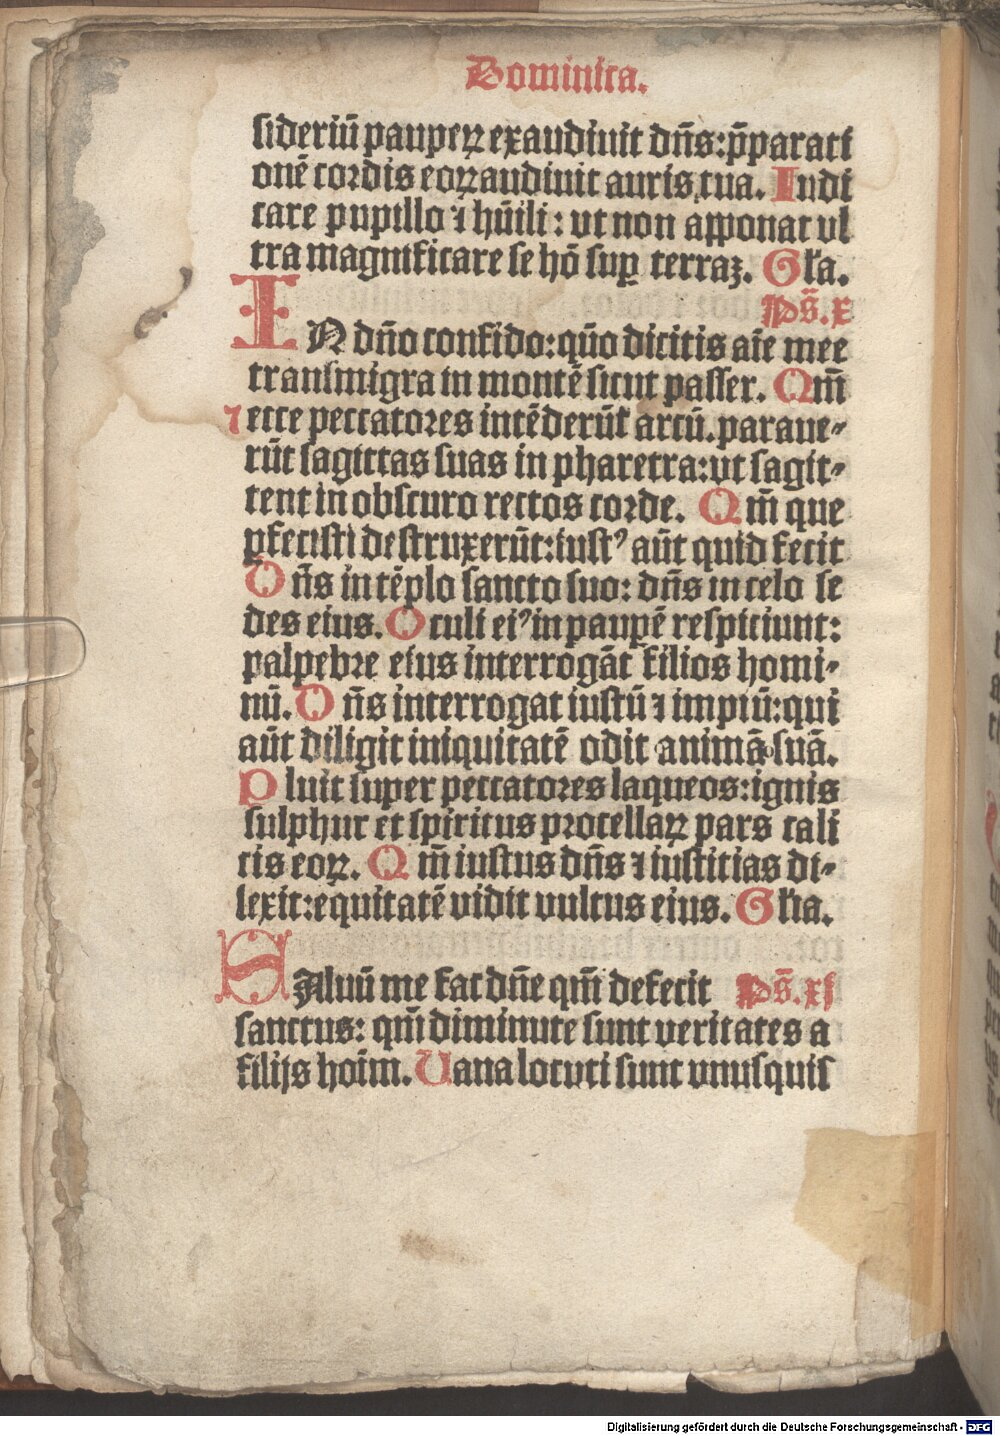 Dominica.
sideriū pauperꝝ exaudiuit dn̄s: p̄paraci
onē cordis eoꝝ audiuit auris tua. Iudi
care pupillo ⁊ hūili: ut non apponat ul
tra magnificare se hō suꝑ terraꝫ. Gl'a.
Ps̄. x
IN dn̄o confido: qūo dicitis aīe mee
transmigra in montē sicut passer. Qm̄
⁊ ecce peccatores intēderūt arcū. paraue-
rūt sagittas suas in pharetra: ut sagit-
tent in obscuro rectos corde. Qm̄ que
ꝑfecisti destruxerūt: iustꝰ aūt quid fecit
Dn̄s in tēplo sancto suo: dn̄s in celo se
des eius. Oculi eiꝰ in pauꝑē respiciunt:
palpebre eius interrogāt filios homi-
nū. Dn̄s interrogat iustū ⁊ impiū: qui
aūt diligit iniquitatē odit animā suā.
Pluit super peccatores laqueos: ignis
sulphur et spiritus procellaꝝ pars cali
cis eoꝝ. Qm̄ iustus dn̄s ⁊ iustitias di-
lexit: equitatē vidit vultus eius. Gl'ia.
SAluū me fac dn̄e qm̄ defecit Ps̄. xi
sanctus: qm̄ diminute sunt veritates a
filijs hoīm. Uana locuti sunt vnusquis
Digitalisierung gefördert durch die Deutsche Forschungsgemeinschaft - DFG